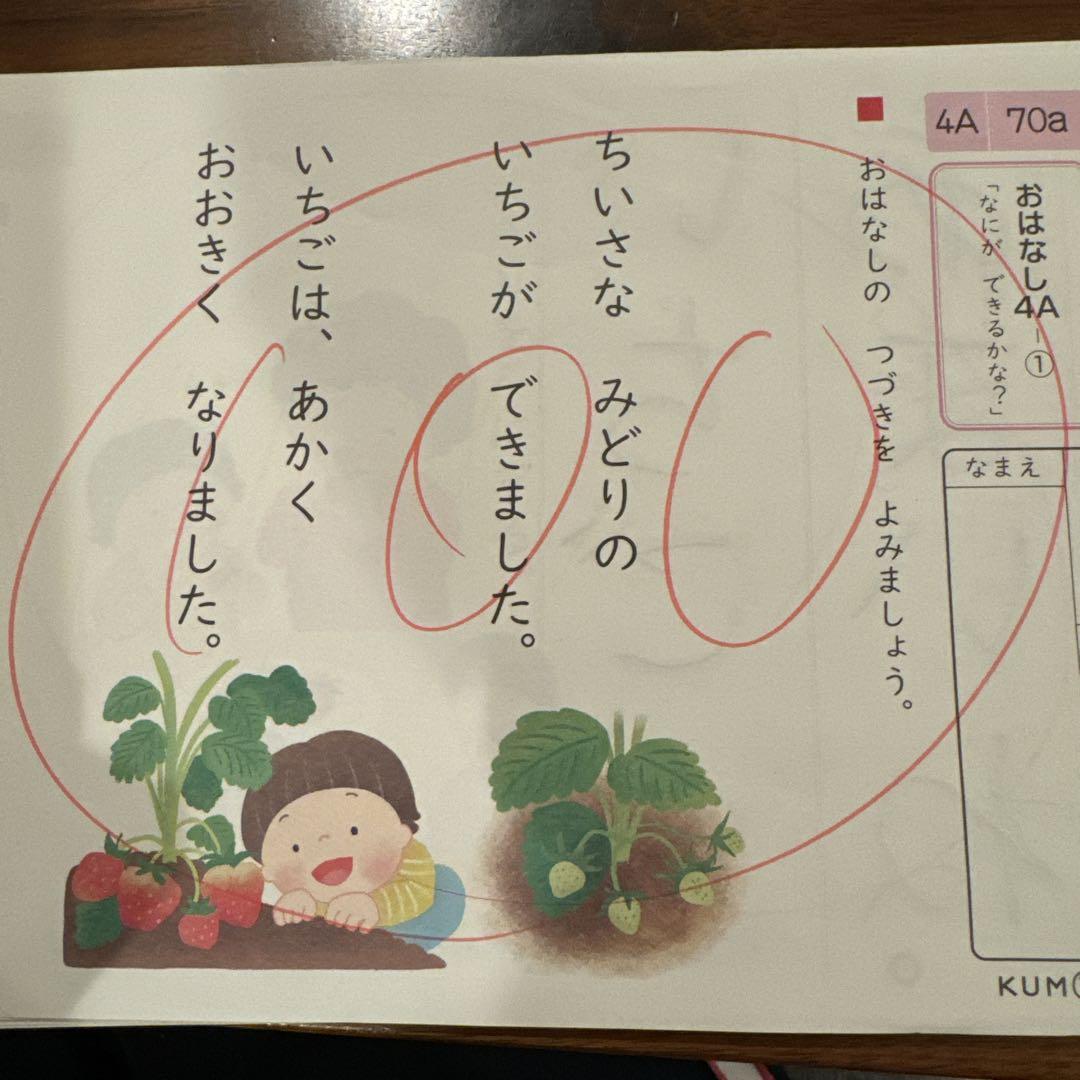 4A 70a
おはなし4A-①
「なにが できるかな?」
なまえ
■ おはなしの つづきを よみましょう。
ちいさな みどりの
いちごが できました。
いちごは、あかく
おおきく なりました。
100